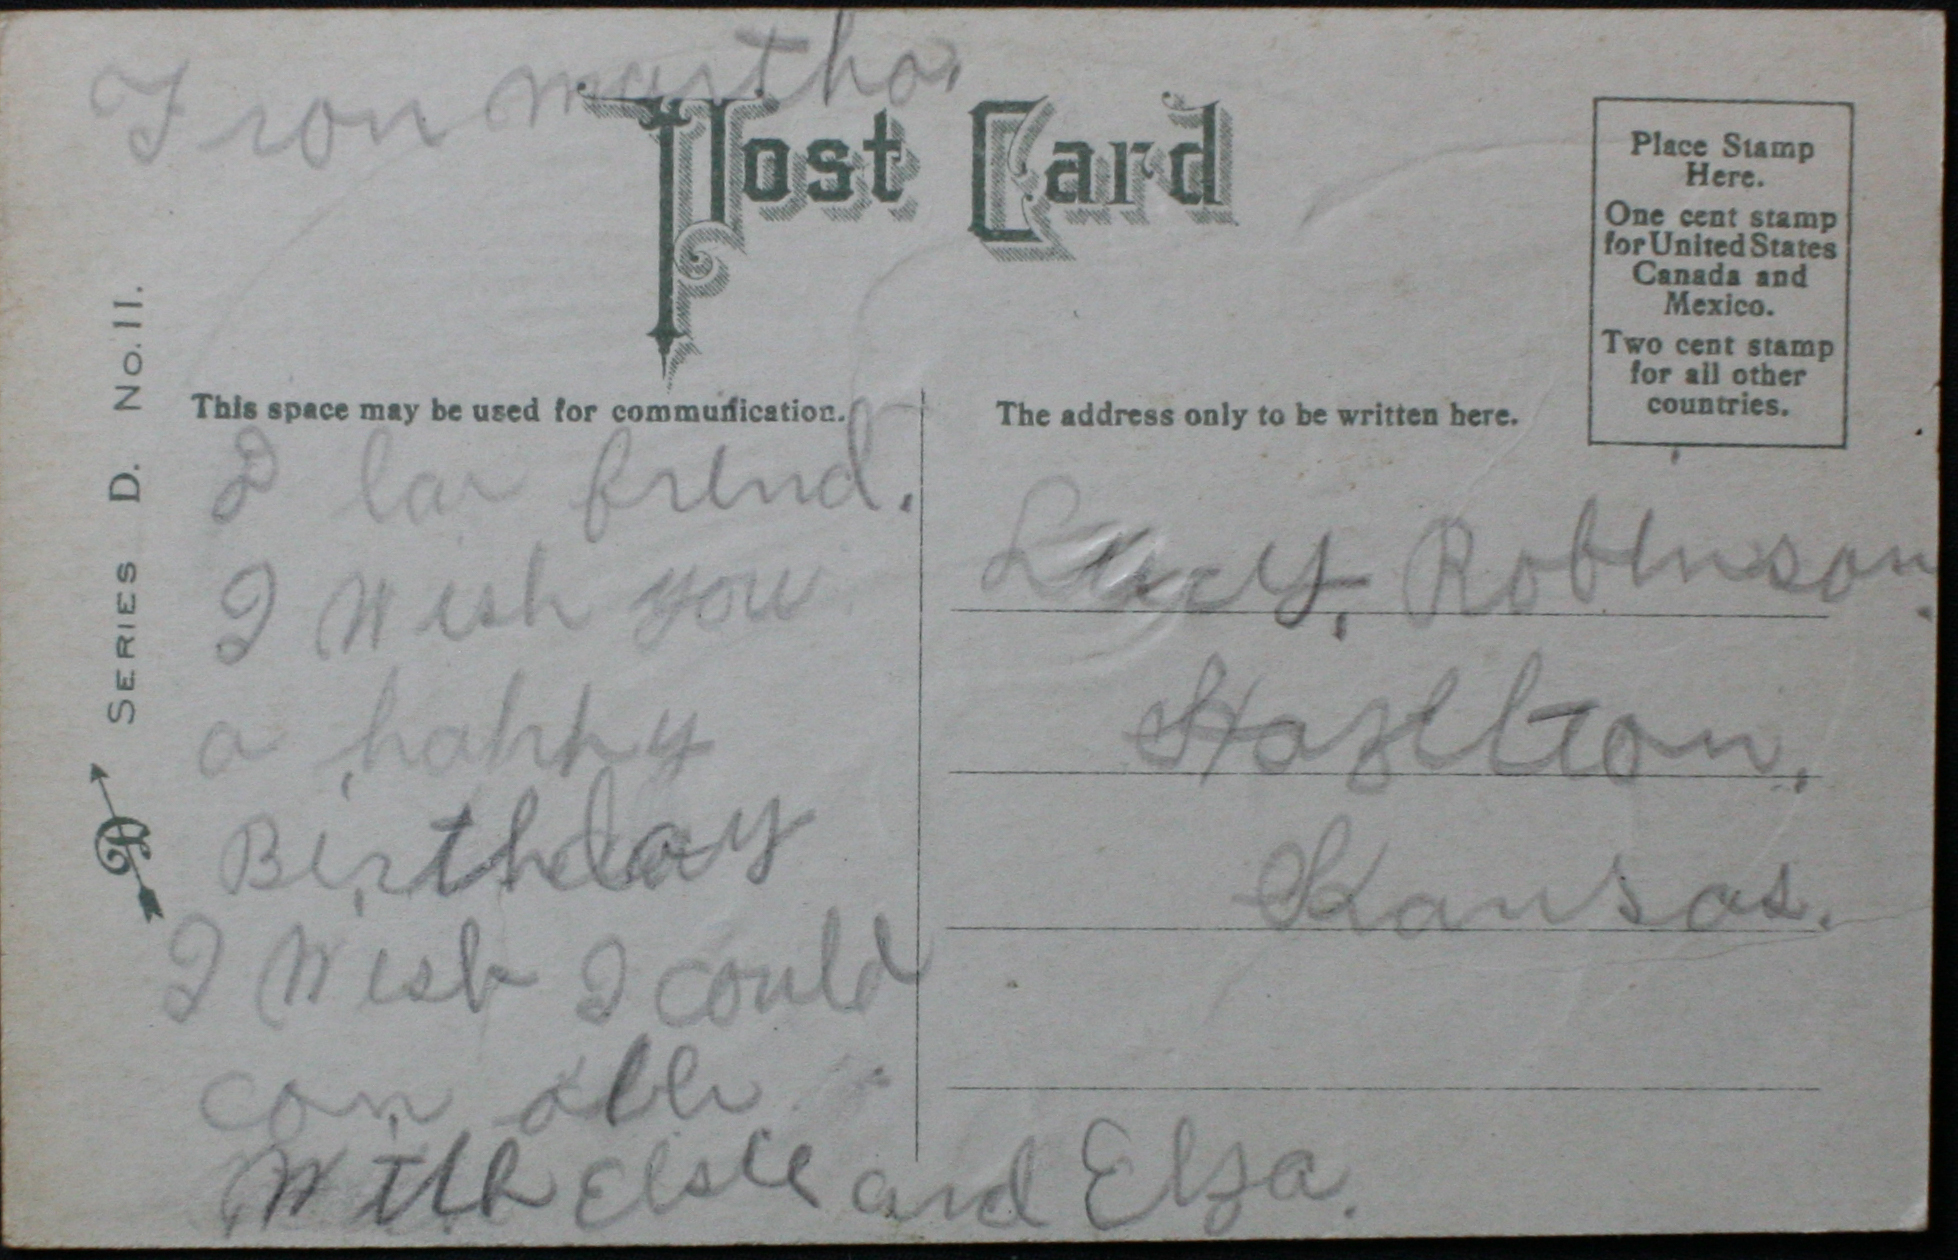 Fron martha.
Post Card
Place Stamp
Here.
One cent stamp
for United States
Canada and
Mexico.
Two cent stamp
for all other
countries.
SERIES D. No. 11.
This space may be used for communication.
The address only to be written here.
D lar frend.
I Wish you
a happy
Birthday
I Wish I could
com
With Elsie and Elza.
Lucy, Robinson.
Hazelton,
Kansas.